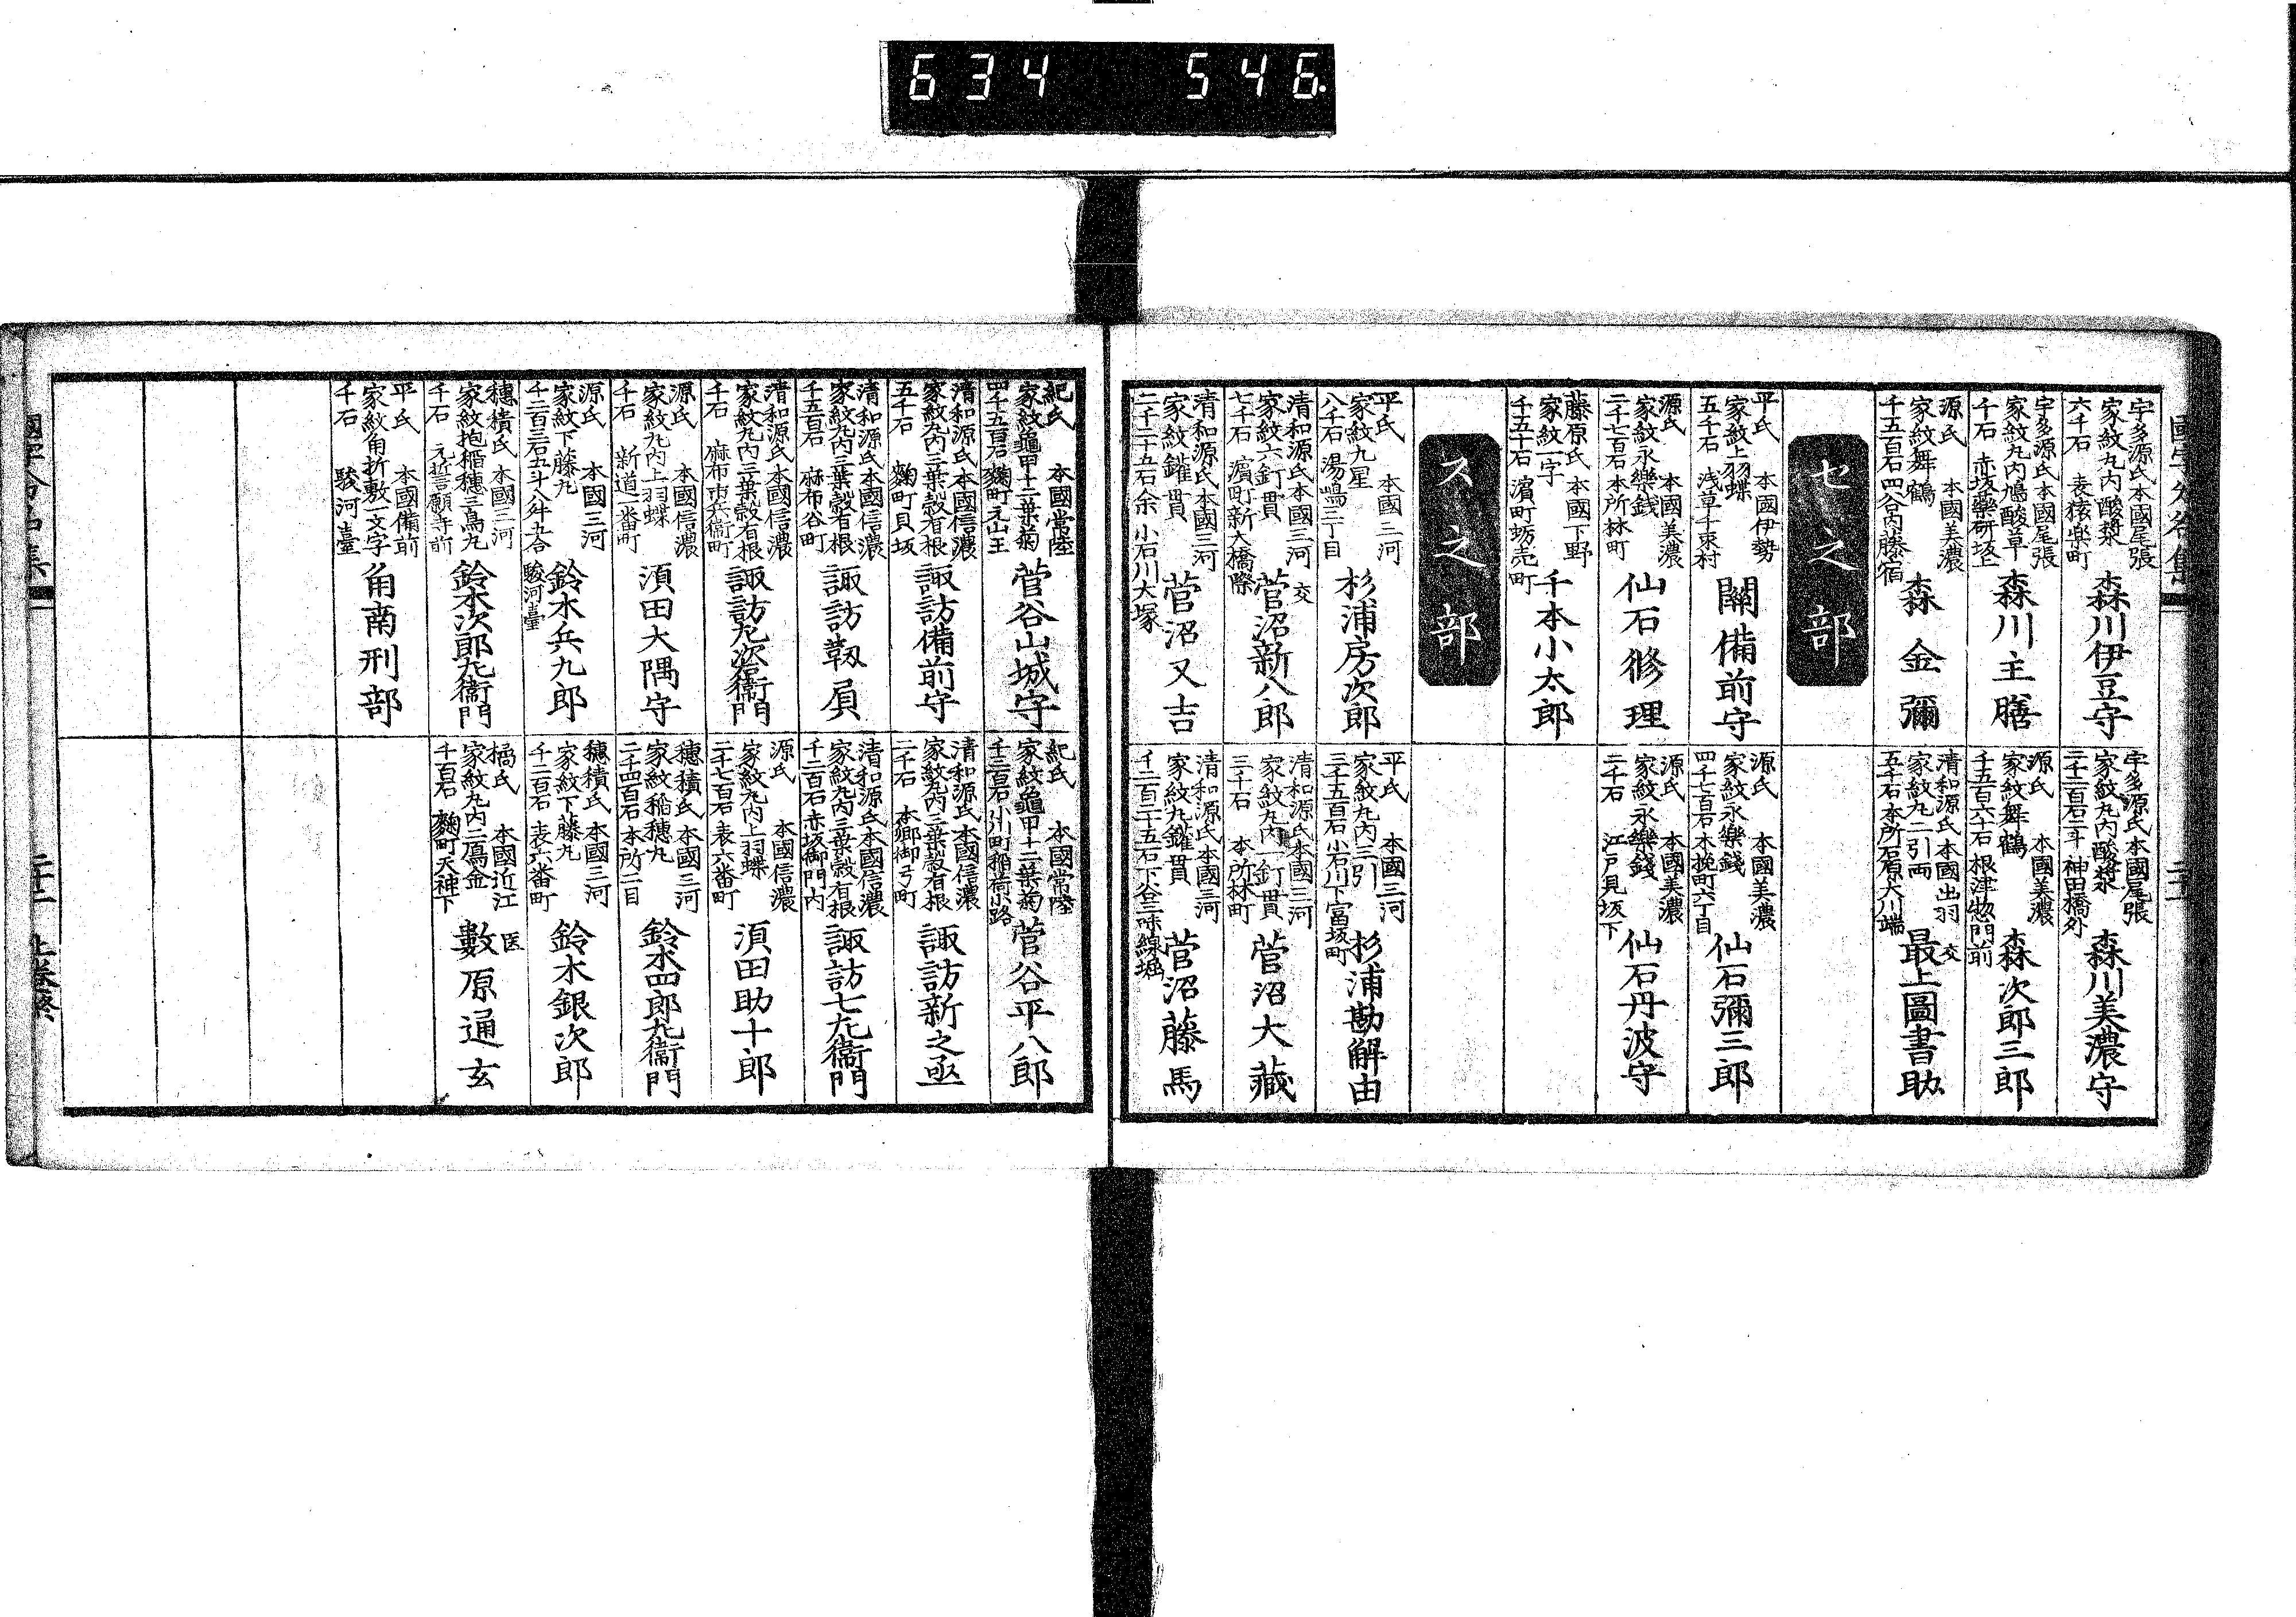 634 546.
宇多源氏 本國尾張
家紋丸内酸漿
六千石 表猿楽町
森川伊豆守
宇多源氏 本國尾張
家紋丸内鳩酸草
千石 赤坂薬研坂上
森川主膳
源氏 本國美濃
家紋舞鶴
千五百石 四谷内藤宿
森金彌
宇多源氏 本國尾張
家紋丸内酸漿
神田橋外
森川美濃守
源氏 本國美濃
家紋舞鶴
千五百六十石 根津惣門前
森次郎三郎
清和源氏 本國出羽
家紋丸二引両
五千石 本所石原大川端
交
最上圖書助
セ之部
平氏 本國伊勢
家紋上羽蝶
五千石 浅草千束村
關備前守
源氏 本國美濃
家紋永樂錢
二千七百石 本所林町
仙石修理
藤原氏 本國下野
家紋一字
千五十石 濱町蛎壳町
千本小太郎
源氏 本國美濃
家紋永樂錢
四千七百石 木挽町六丁目
仙石彌三郎
源氏 本國美濃
家紋永樂錢
二千石 江戸見坂下
仙石丹波守
ス之部
平氏 本國三河
家紋九星
八千石 湯嶋三丁目
杉浦房次郎
清和源氏 本國三河
家紋六釘貫
七千石 濱町新大橋際
交
菅沼新八郎
清和源氏 本國三河
家紋鑵貫
二千二十五石余 小石川大塚
菅沼又吉
平氏 本國三河
家紋丸内三引
三千五百石 小石川下富坂町
杉浦勘解由
清和源氏 本國三河
家紋丸内一釘貫
三千石 本所林町
菅沼大藏
清和源氏 本國三河
家紋丸鑵貫
千二百二十五石 下谷三味線堀
菅沼藤馬
紀氏 本國常陸
家紋龜甲十二葉菊
四千五百石 麹町元山王
菅谷山城守
清和源氏 本國信濃
家紋丸内三葉穀有根
五千石 麹町貝坂
諏訪備前守
清和源氏 本國信濃
家紋丸内三葉穀有根
千五百石 麻布谷町
諏訪靱負
清和源氏 本國信濃
家紋丸内三葉穀有根
千石 麻布市兵衛町
諏訪九次右衛門
源氏 本國信濃
家紋丸内上羽蝶
千石 新道一番町
須田大隅守
源氏 本國三河
家紋下藤丸
千二百三石五斗八升九合
駿河臺
鈴木兵九郎
穗積氏 本國三河
家紋抱稲穂三鳥丸
千石 元誓願寺前
鈴木次郎左衛門
平氏 本國備前
家紋角折敷一文字
千石 駿河臺
角南刑部
紀氏 本國常陸
家紋龜甲十二葉菊
稲荷小路
菅谷平八郎
清和源氏 本國信濃
家紋丸内三葉穀有根
二千石 本郷御弓町
諏訪新之亟
清和源氏 本國信濃
家紋丸内三葉穀有根
千二百石 赤坂御門内
諏訪七左衛門
源氏 本國信濃
家紋丸内上羽蝶
二千七百石 表六番町
須田助十郎
穗積氏 本國三河
家紋稲穂丸
二千四百石 本所二目
鈴木四郎左衛門
穗積氏 本國三河
家紋下藤丸
千二百石 表六番町
鈴木銀次郎
橘氏 本國近江
家紋丸内二鴈金
千百石 麹町天神下
医
數原通玄
上巻終